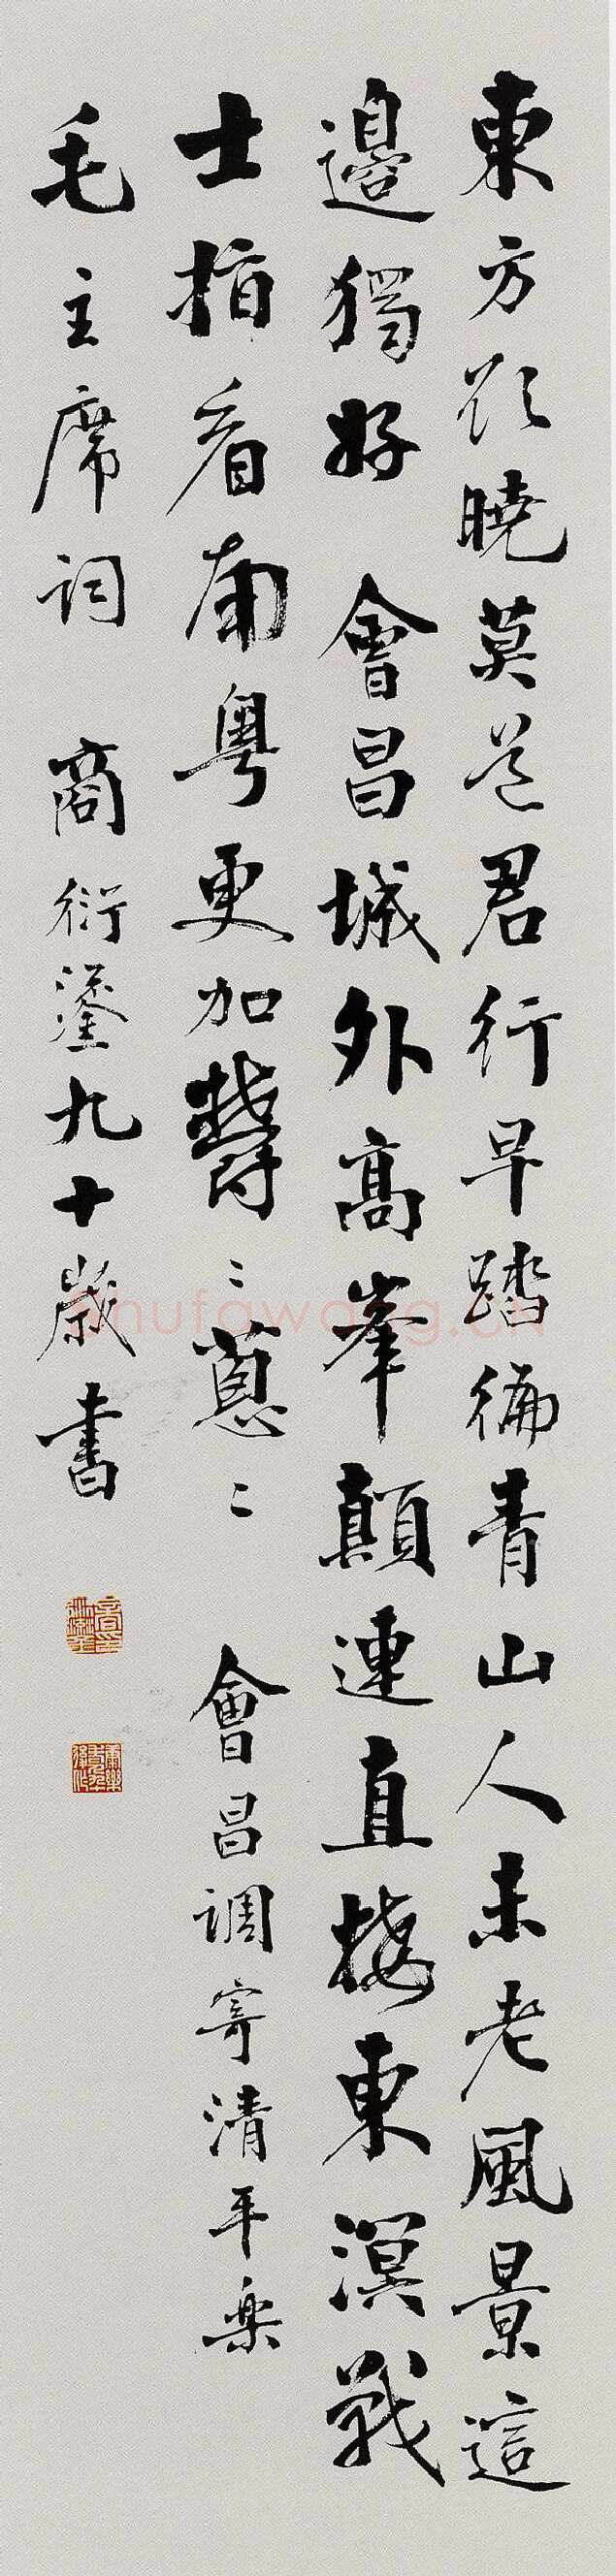 東方欲曉莫道君行早踏徧青山人未老風景這
邊獨好 會昌城外高峯顛連直接東溟戰
士指看南粵更加欝〻蔥〻 會昌調寄清平樂
毛主席詞 商衍鎏九十歲書
shufawang.cn